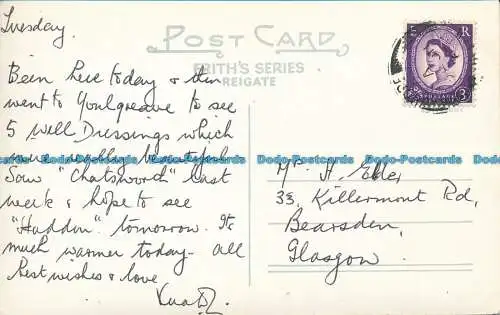 Tuesday.
POST CARD
FRITH'S SERIES
REIGATE
E R
3D
Been here today & then
went to Youlgreave to see
5 Well Dressings which
were really beautiful
Saw "Chatsworth" last
week & hope to see
"Haddon" tomorrow. It's
much warmer today - all
best wishes & love
Mr H.
33, Killermont Rd,
Bearsden,
Glasgow.
Dodo-Postcards Dodo-Postcards Dodo-Postcards Dodo-Postcards Dodo-Postcards